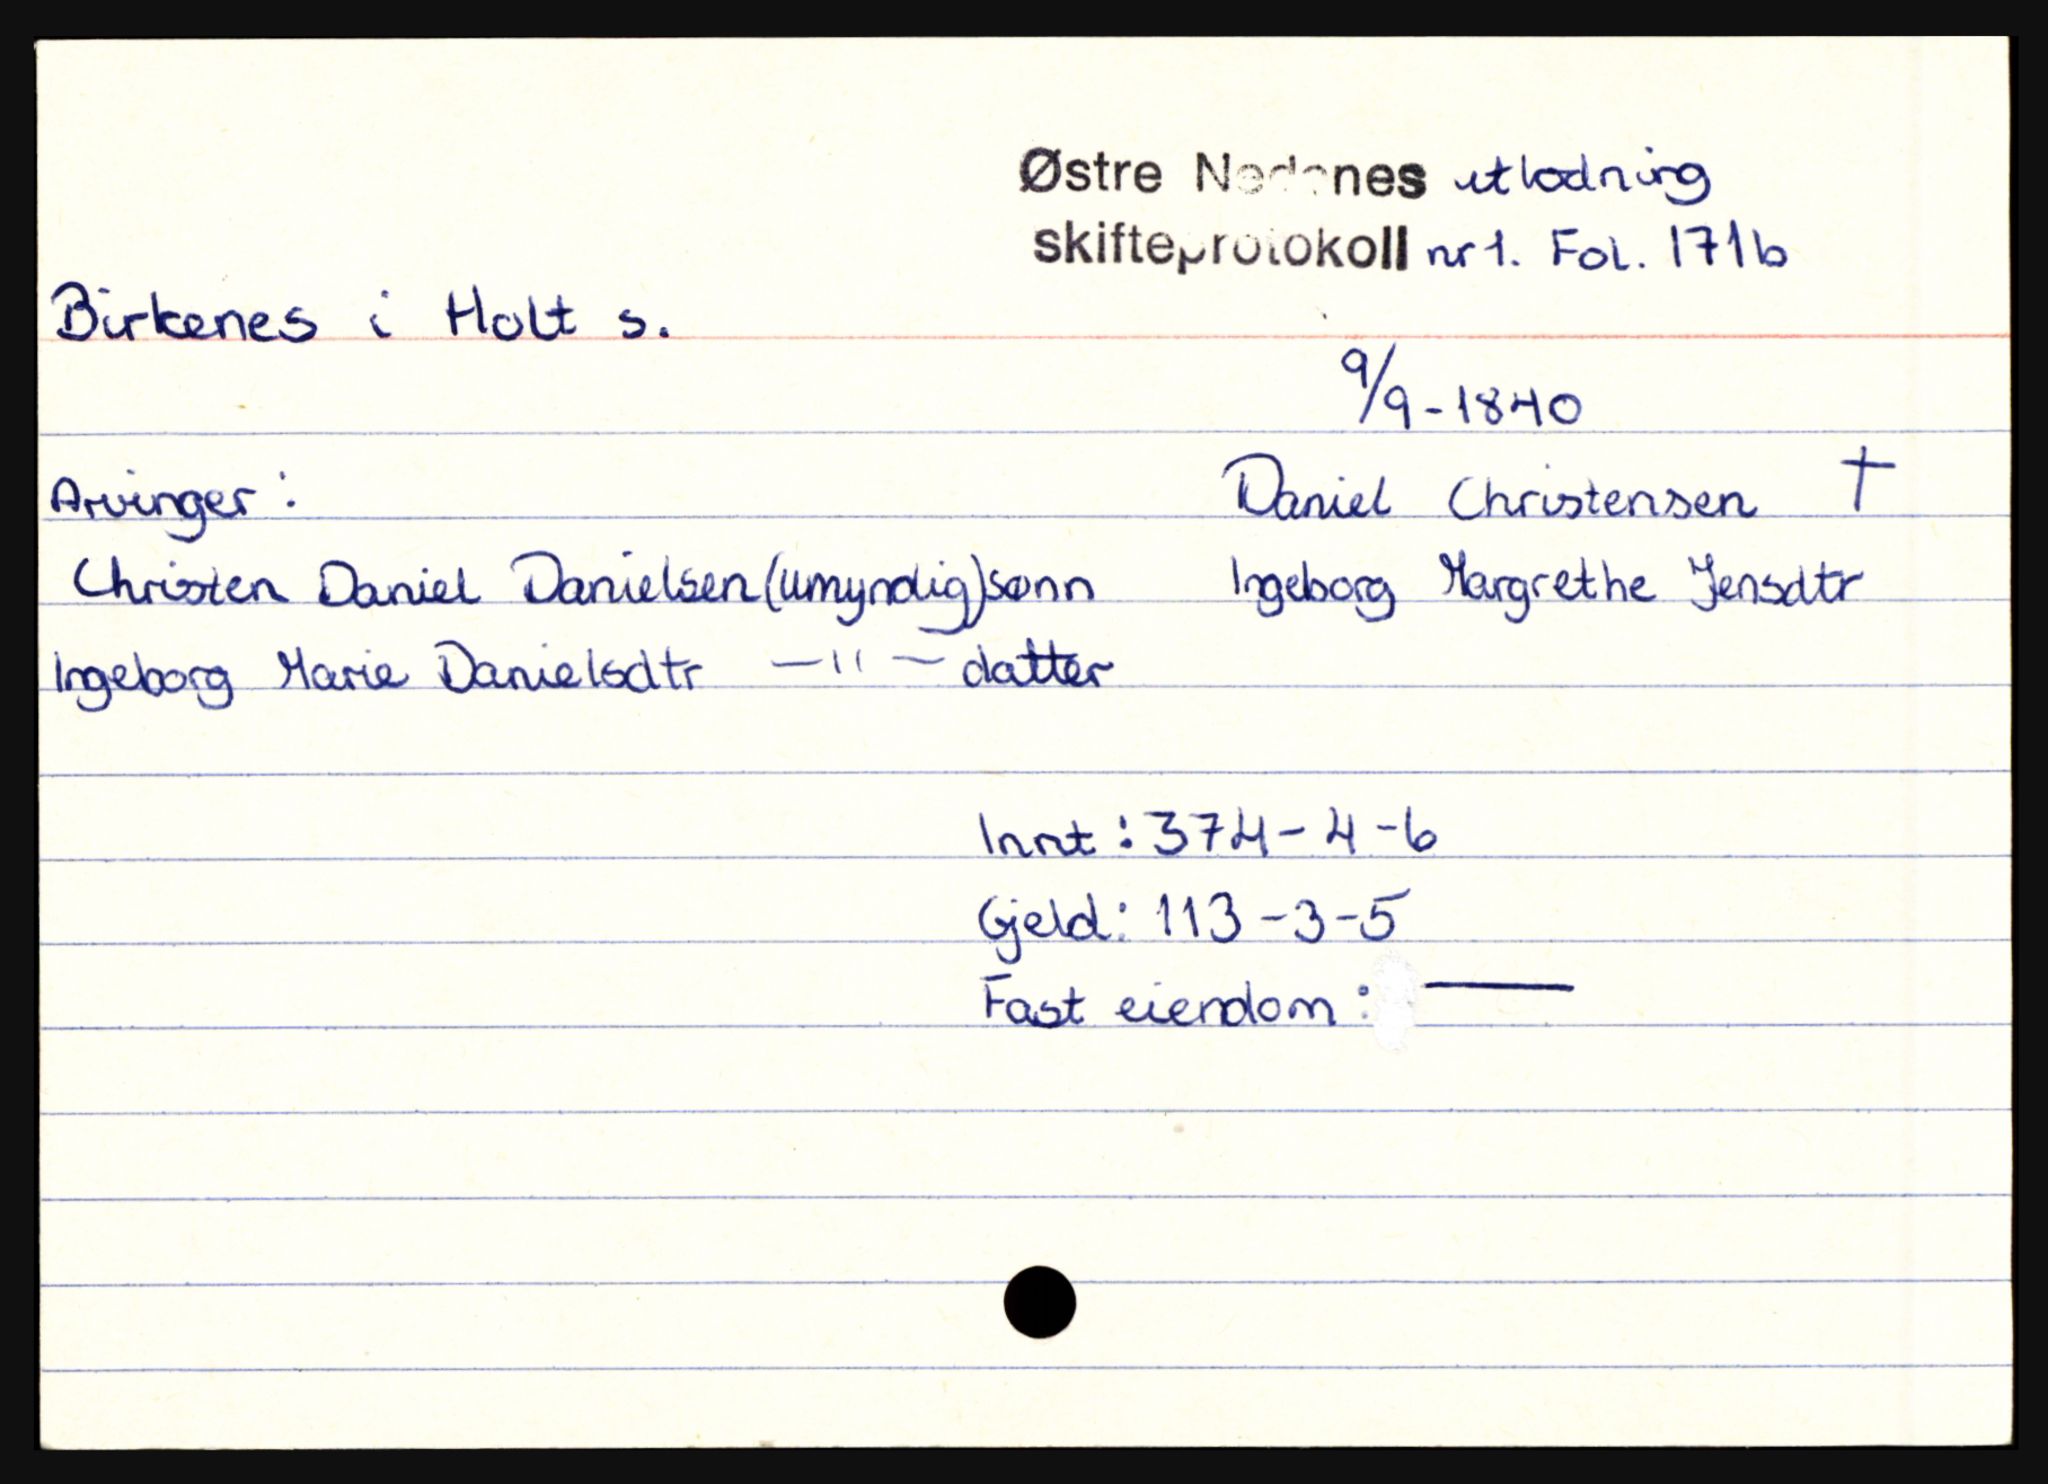 Østre Nedenes utlodning
skifteprotokoll nr 1. Fol. 171b
Birkenes i Holt s.
9/9-1840
Arvinger:
Daniel Christensen †
Christen Daniel Danielsen (umyndig) sønn
Ingeborg Margrethe Jensdtr
Ingeborg Marie Danielsdtr —"— datter
Innt: 374-4-6
Gjeld: 113-3-5
Fast eiendom: —